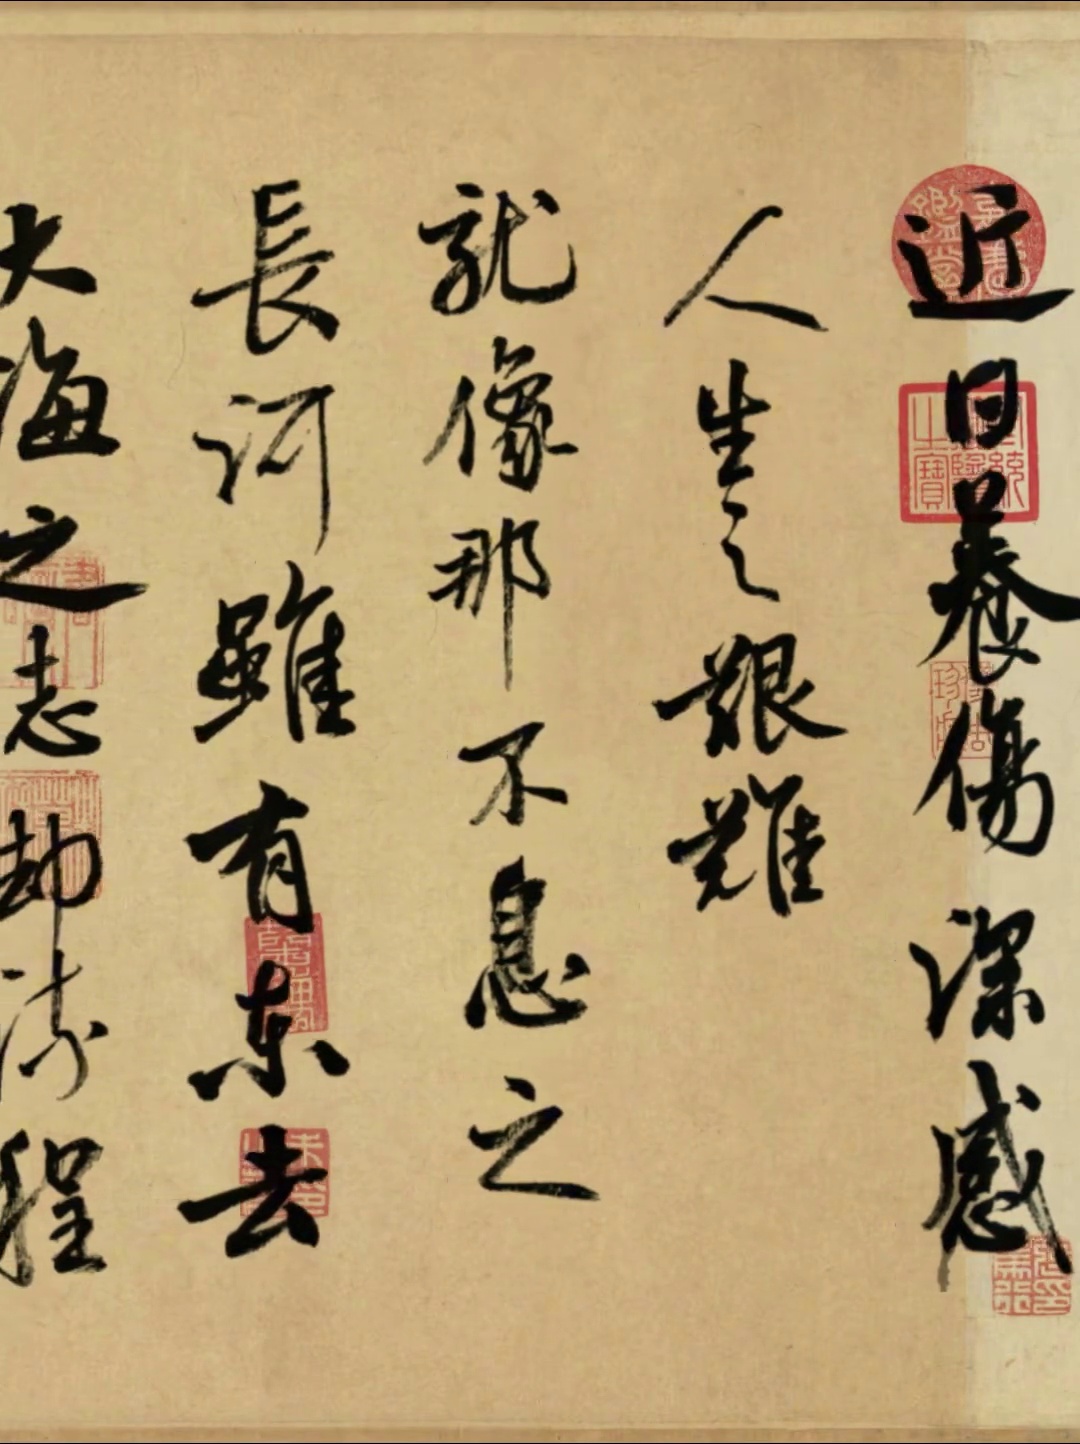 近日養傷深感
人生之艱難
就像那不息之
長河雖有東去
大海之志却流程